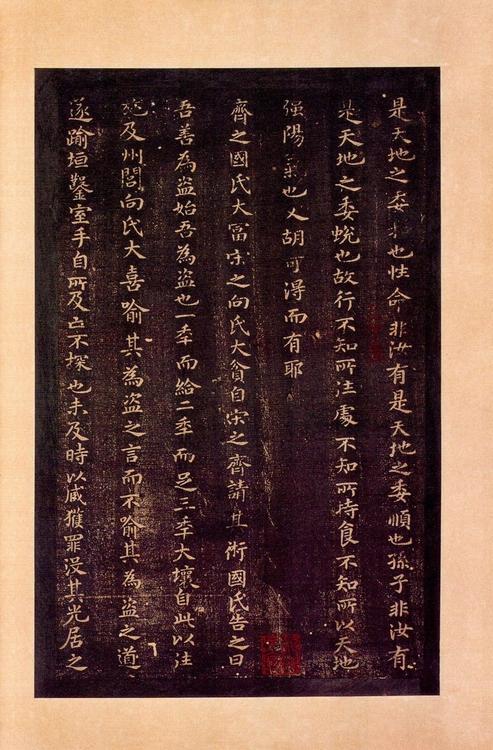 是天地之委和也性命非汝有是天地之委順也孫子非汝有
是天地之委蛻也故行不知所往處不知所持食不知所以天地
强陽氣也又胡可得而有耶
齊之國氏大富宋之向氏大貧自宋之齊請其術國氏告之曰
吾善為盜始吾為盜也一秊而給二秊而足三秊大壤自此以往
施及州閭向氏大喜喻其為盜之言而不喻其為盜之道
遂踰垣鑿室手自所及亡不探也未及時以臧獲罪没其先居之